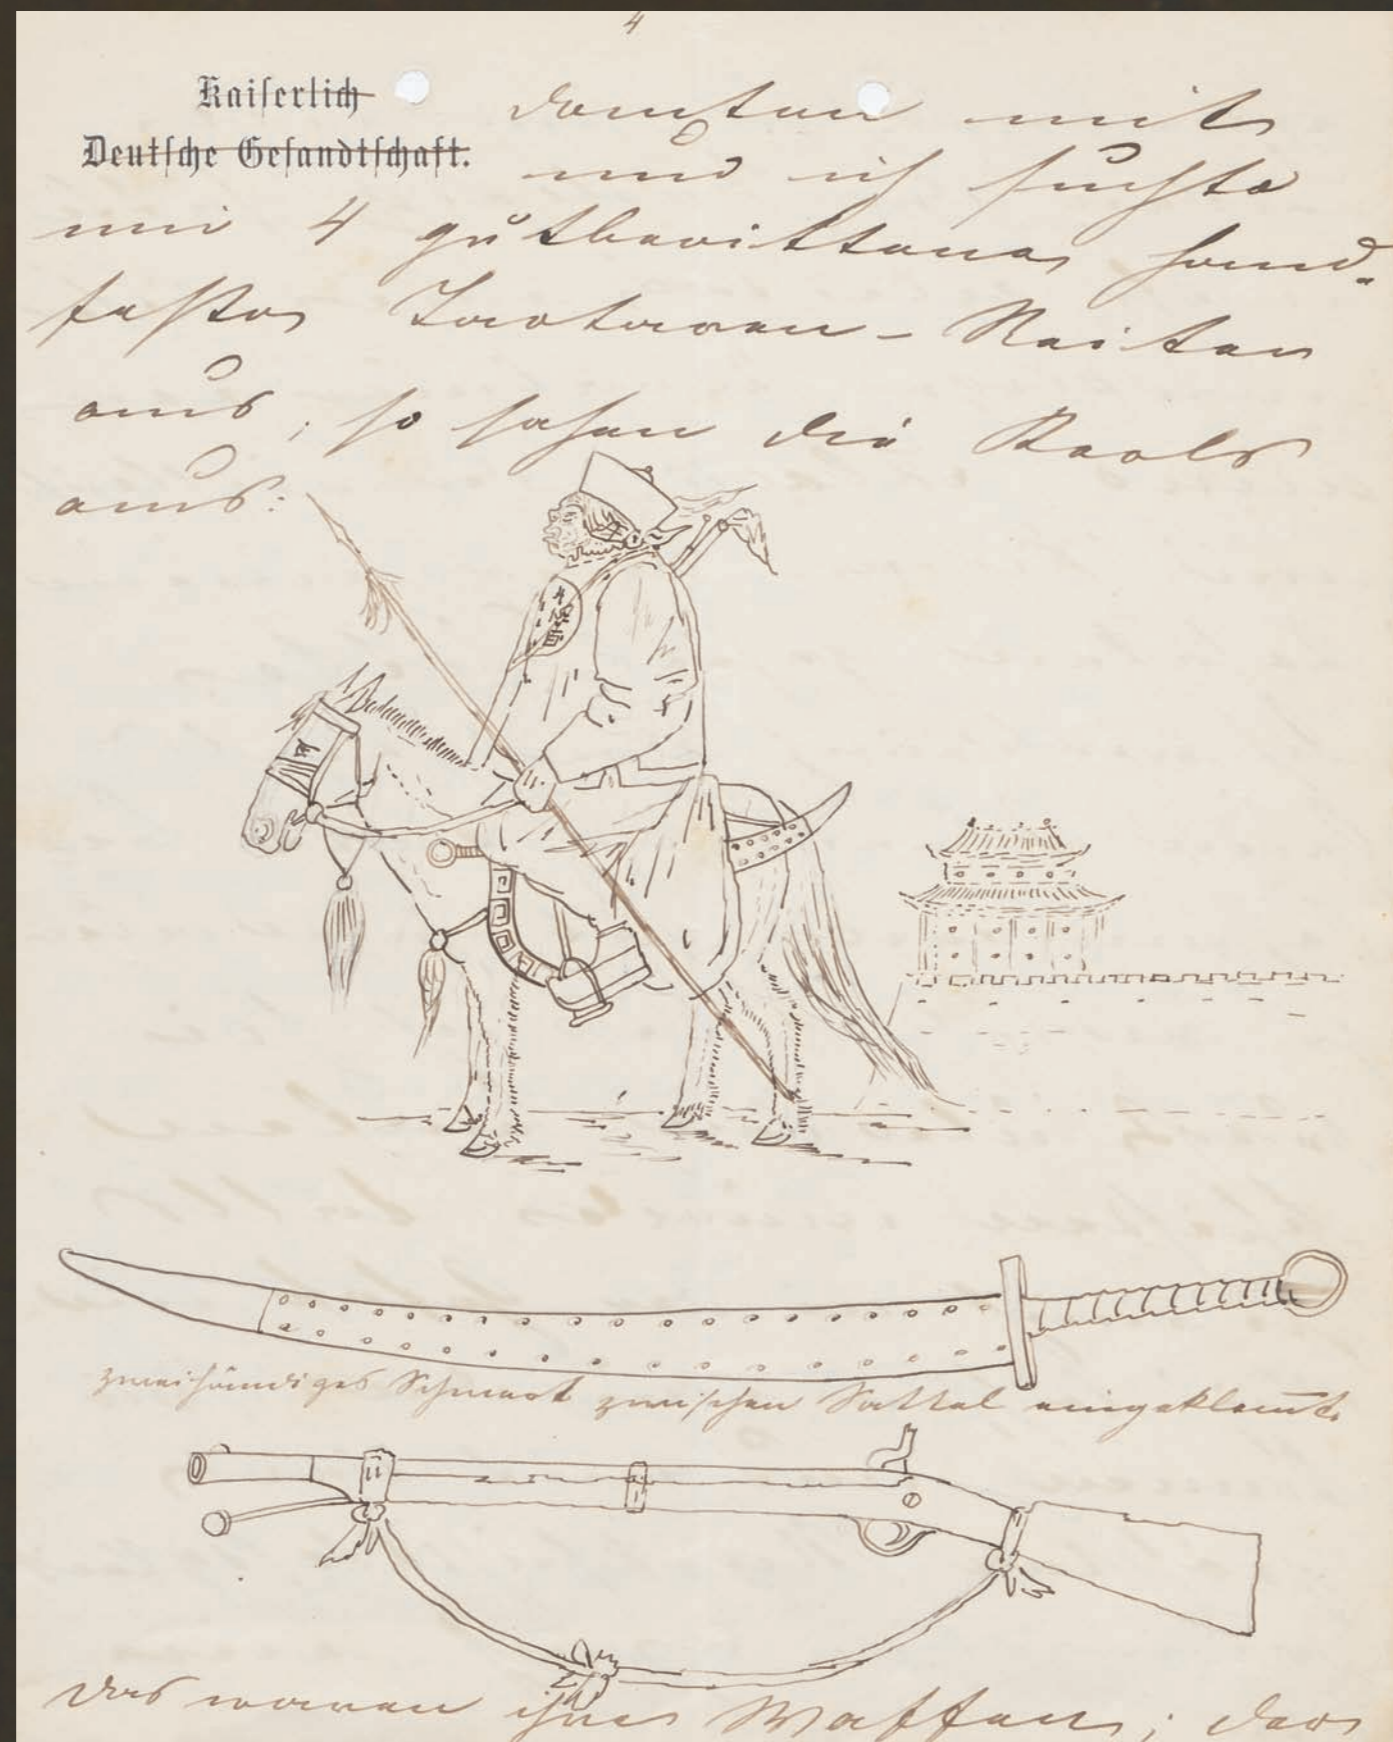 4
Kaiserlich
Deutsche Gesandtschaft.
konnten mit
und ich suchte
mir 4 gutberittene, hand-
feste Tartaren-Reiter
aus; so sahen die Kerls
aus:
zweihändiges Schwert zwischen Sattel eingeklemmt.
das waren ihre Waffen; der